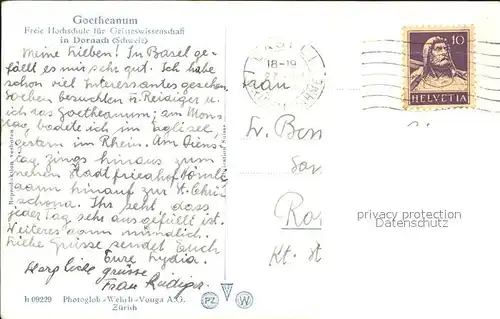 Goetheanum
Freie Hochschule für Geisteswissenschaft
in Dornach (Schweiz)
Meine Lieben! In Basel ge-
fällt es mir sehr gut. Ich habe
schon viel Interessantes gesehen.
Soeben besuchten H. Reidiger u.
ich das Goetheanum; am Mon-
tag, badete ich im Eglisee,
gestern im Rhein. Am Diens-
tag gings hinaus zum
neuen Stadtfriedhof Hörnli
dann hinauf zur St. Chri-
schona. Ihr seht, dass
jeder Tag sehr ausgefüllt ist.
Weiteres dann mündlich.
Liebe Grüsse sendet Euch
Eure Lydia.
Herzliche grüsse
Frau Reidiger.
h 09229 Photoglob-Wehrli-Vouga A.G.
Zürich
Reproduktion verboten
PZ W
18-19
10
HELVETIA
Frau
Kt. St
privacy protection
Datenschutz